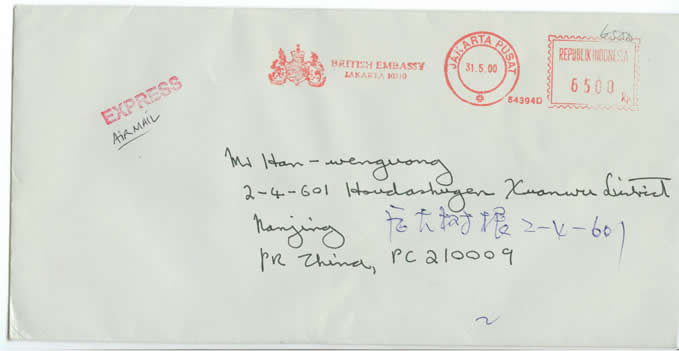 6500
BRITISH EMBASSY
JAKARTA 10310
JAKARTA PUSAT
31.5.00
54394D
REPUBLIK INDONESIA
6500 Rp
EXPRESS
AIR MAIL
Mr Han-wenguang
2-4-601 Houdashugen Xuanwu District
Nanjing 后大树根 2-4-601
PR China, PC 210009